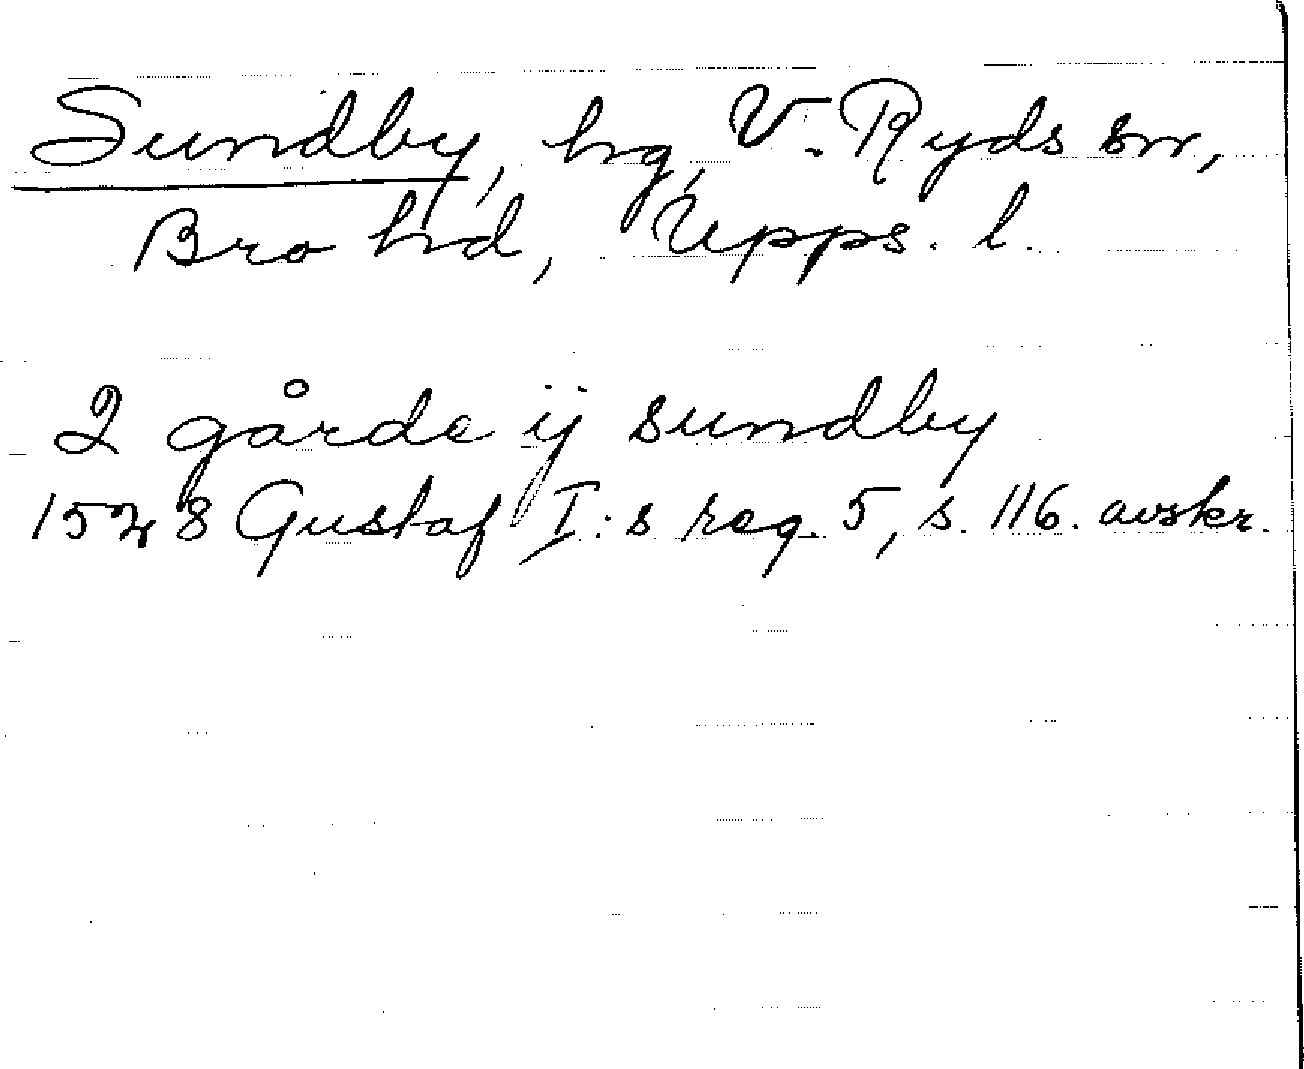 Sundby, hg, V. Ryds sn,
Bro hd, Upps. l.
2 gårde ij sundby
1528 Gustaf I:s reg. 5, s. 116. avskr.